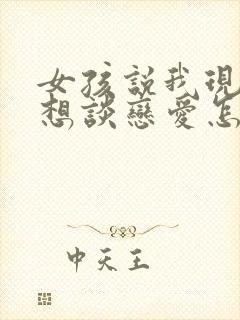 女孩說我現
想談戀愛怎
中天王